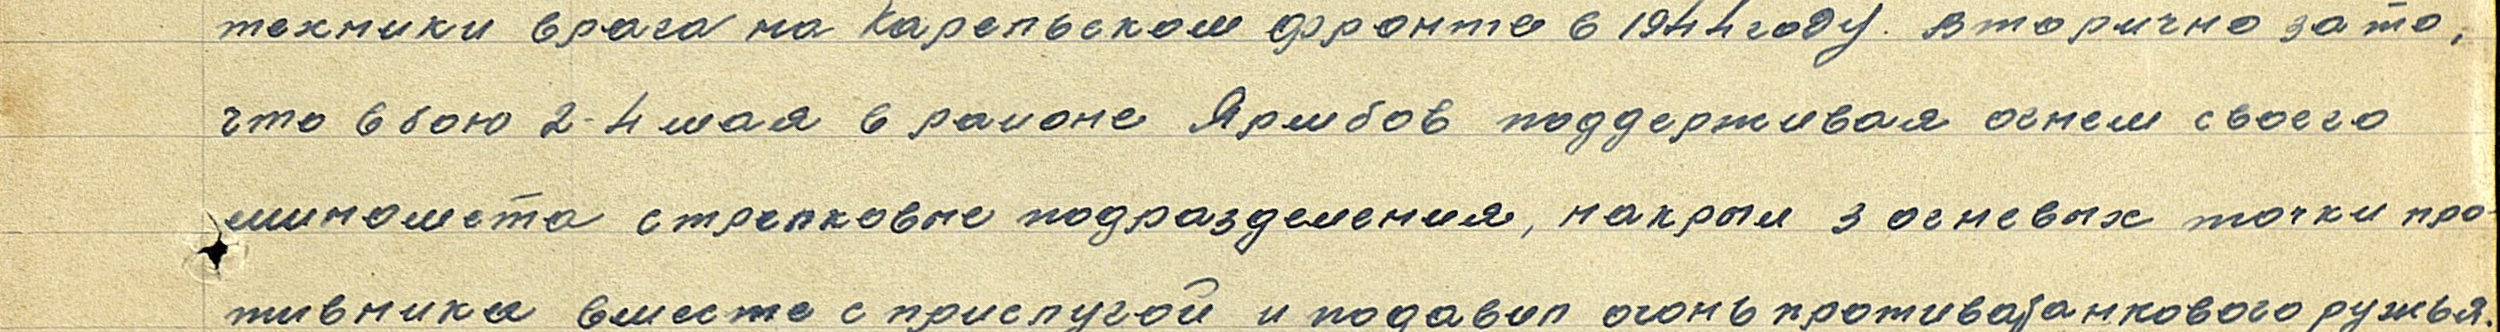 техники врага на Карельском фронте в 1944 году. Вторично за то,
что в бою 2-4 мая в районе Ярмбов поддерживая огнем своего
миномета стрелковые подразделения, накрыл 3 огневых точки про-
тивника вместе с прислугой и подавил огонь противотанкового ружья.